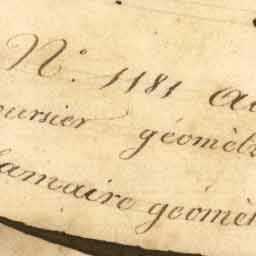 N.° 1181 au
oursier géomèt
lamaire géomèt